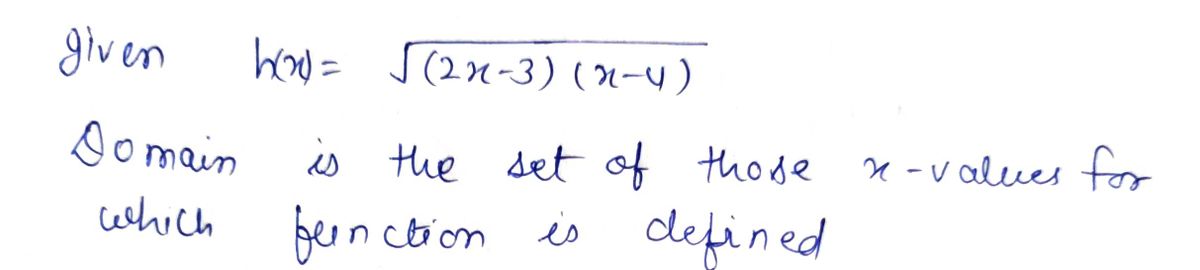 given h(x) = √(2x-3)(x-4)
Domain is the set of those x-values for
which function is defined